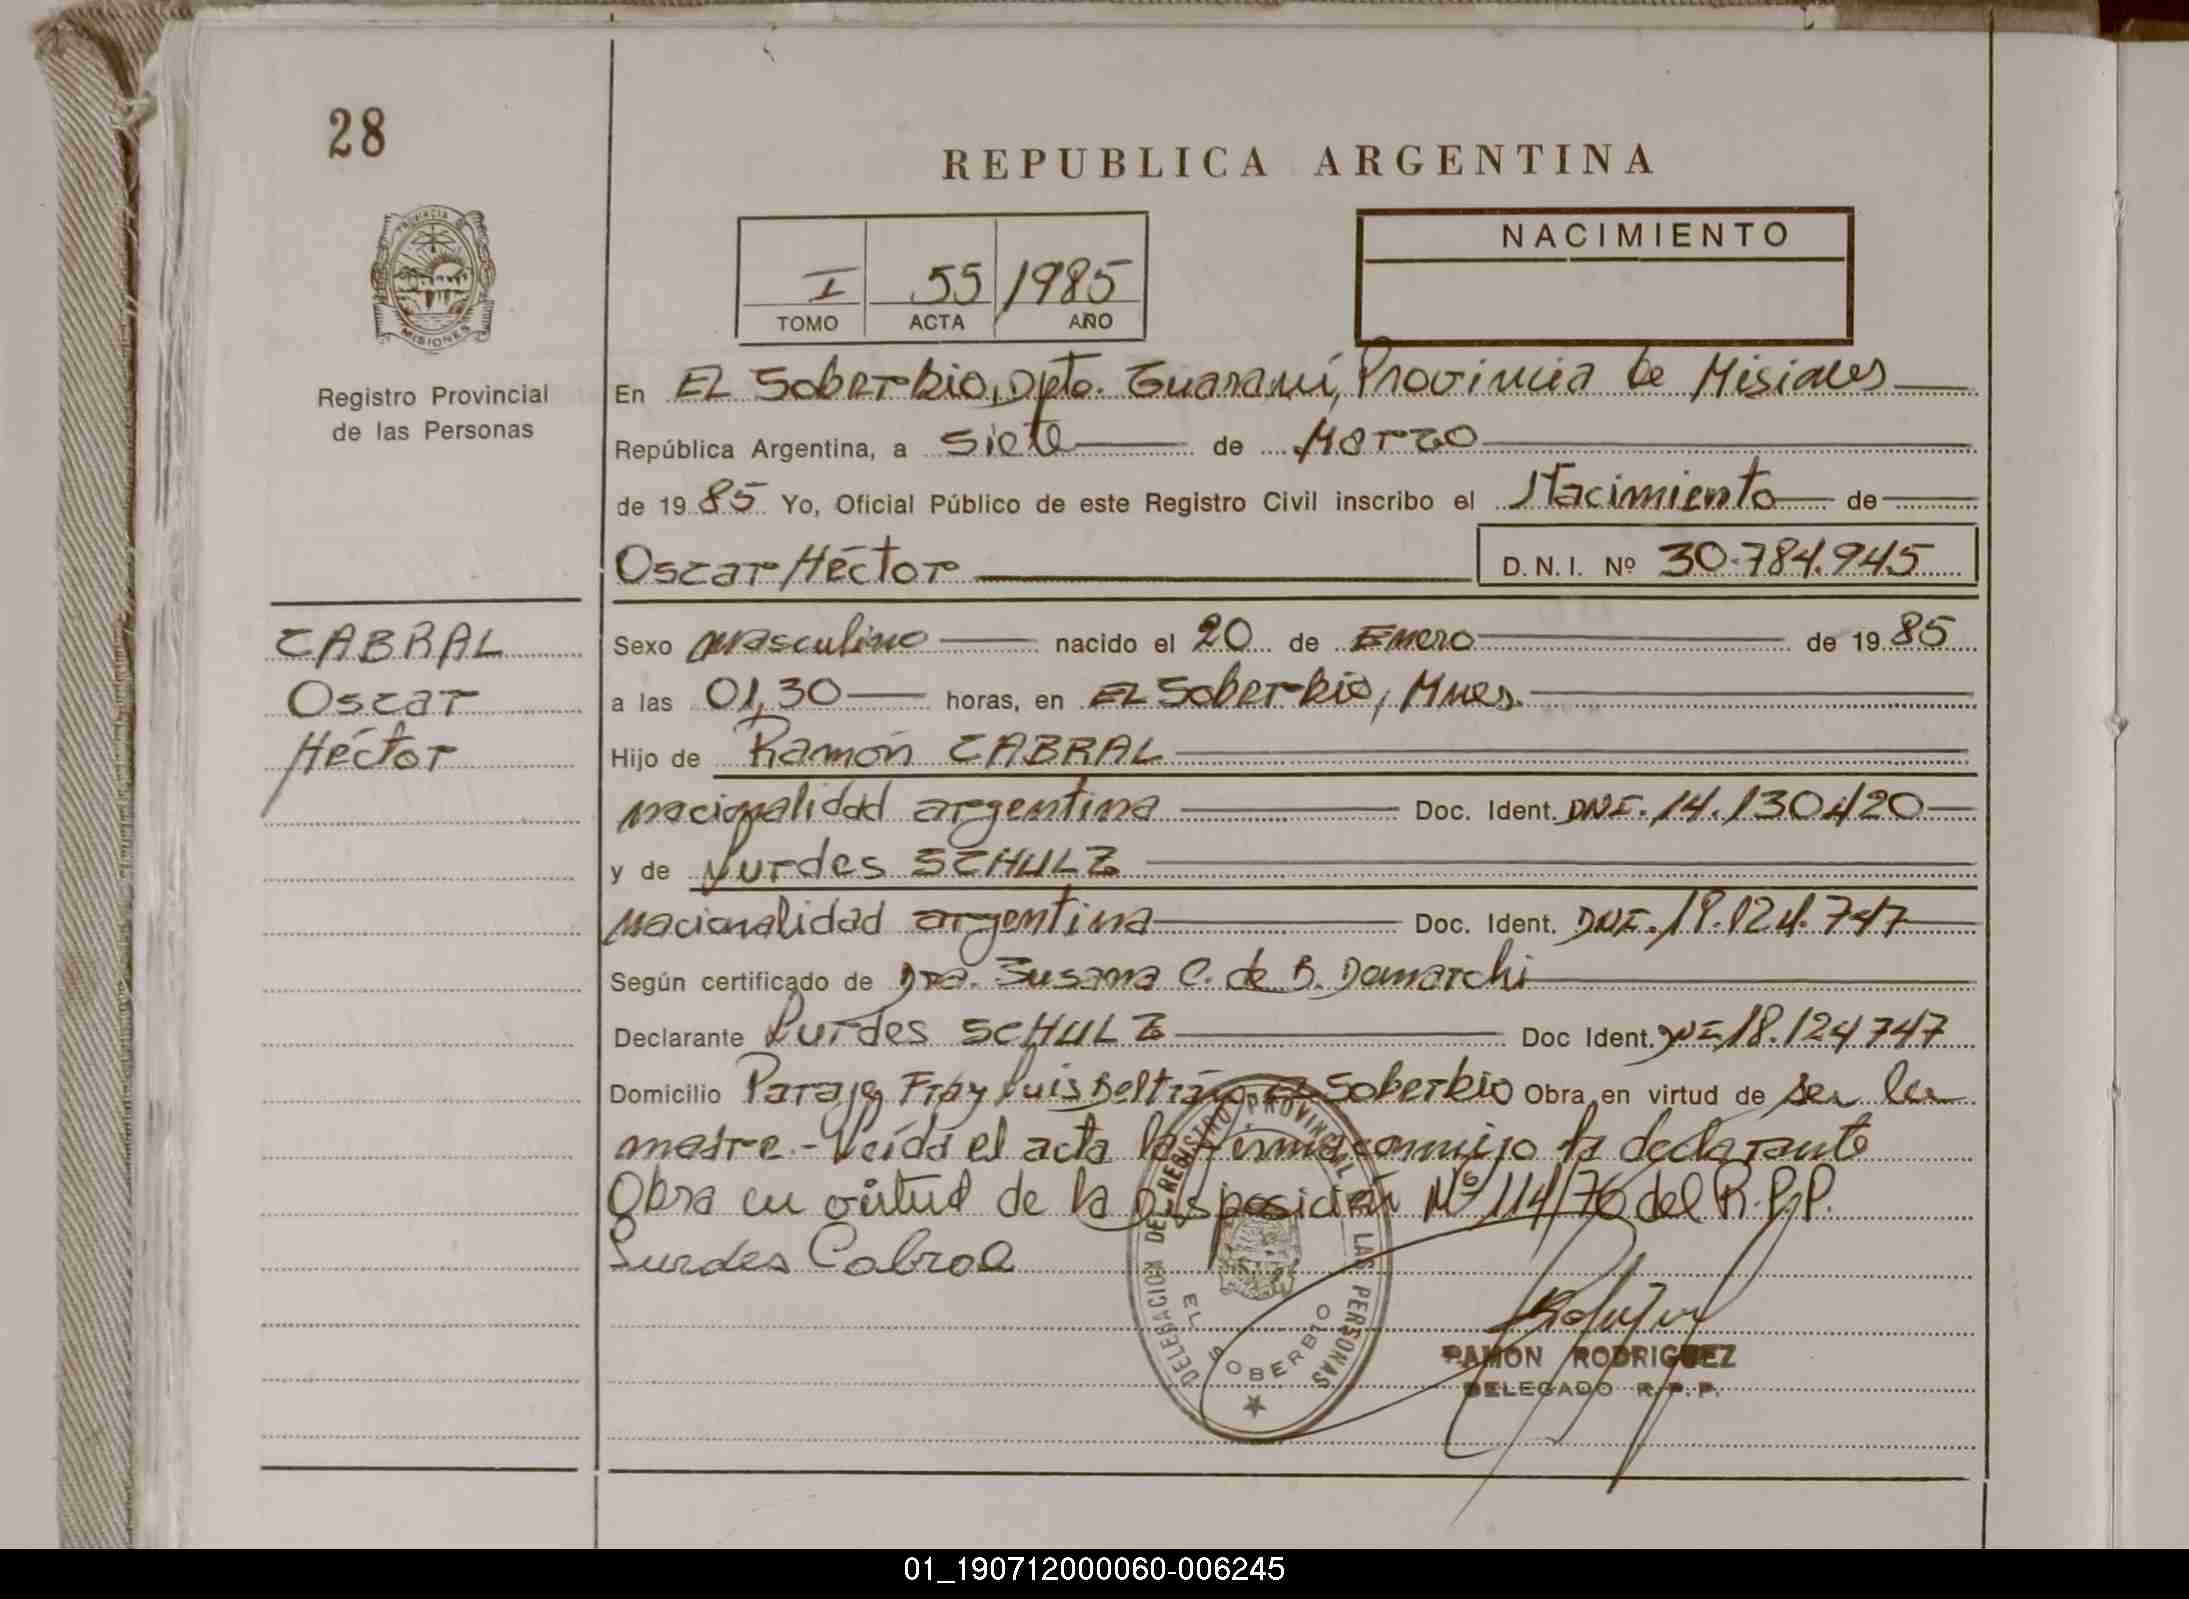 28
REPUBLICA ARGENTINA
PROVINCIA DE
MISIONES
I 55 1985
TOMO ACTA AÑO
NACIMIENTO
Registro Provincial
de las Personas
En EL Soberbio, Dpto. Guaraní, Provincia de Misiones
República Argentina, a siete de Marzo
de 1985 Yo, Oficial Público de este Registro Civil inscribo el Nacimiento de
Oscar Héctor D.N.I. Nº 30.784.945
CABRAL
Oscar
Héctor
Sexo masculino nacido el 20 de Enero de 1985
a las 01,30 horas, en EL Soberbio, Mnes.
Hijo de Ramón CABRAL
nacionalidad argentina Doc. Ident. DNI. 14.130.420
y de Lurdes SCHULZ
nacionalidad argentina Doc. Ident. DNI. 18.124.747
Según certificado de Dra. Susana C. de B. Demarchi
Declarante Lurdes SCHULZ Doc Ident. DNI 18.124747
Domicilio Paraje Fray Luis Beltrán El Soberbio Obra en virtud de ser la
madre.- Leída el acta la firma conmigo la declarante
Obra en virtud de la Disposición Nº 114/76 del R.P.P.
Lurdes Cabral
DELEGACION DEL REGISTRO PROVINCIAL LAS PERSONAS
EL SOBERBIO
RAMON RODRIGUEZ
DELEGADO R.P.P.
01_190712000060-006245